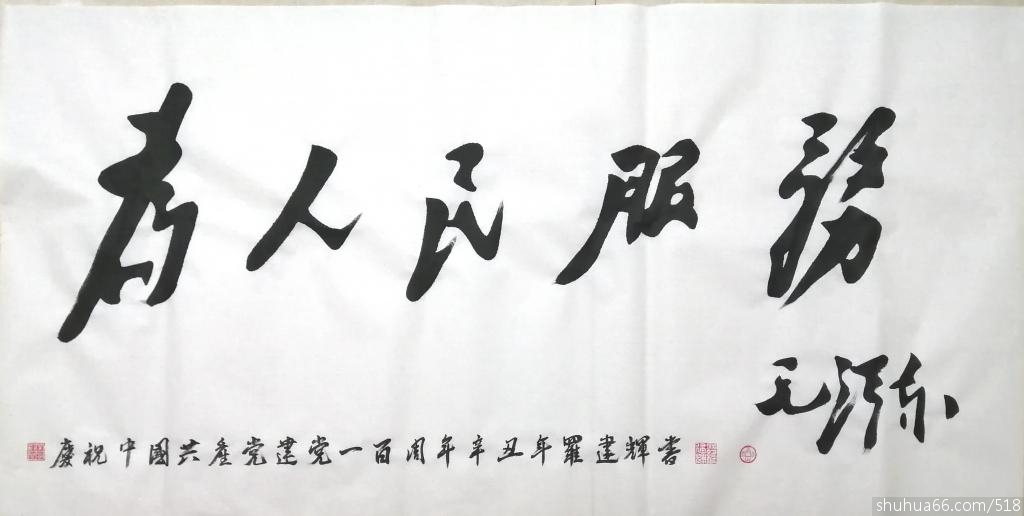 为人民服務
毛泽东
慶祝中國共產党建党一百周年辛丑年羅建輝書
shuhua66.com/518